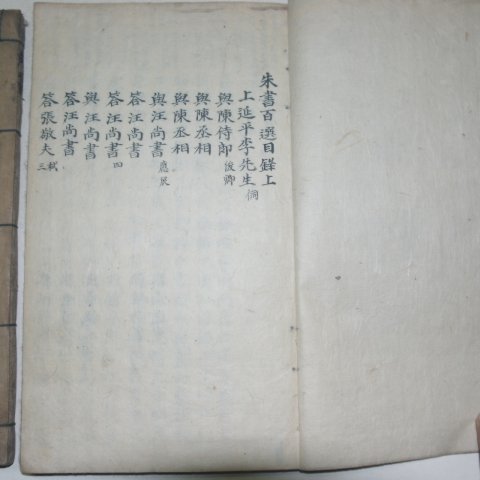 朱書百選目録上
上延平李先生侗
與陳侍郎俊卿
與陳丞相
與陳丞相
與汪尚書應辰
答汪尚書
答汪尚書四
與汪尚書
答汪尚書
答張敬夫栻三